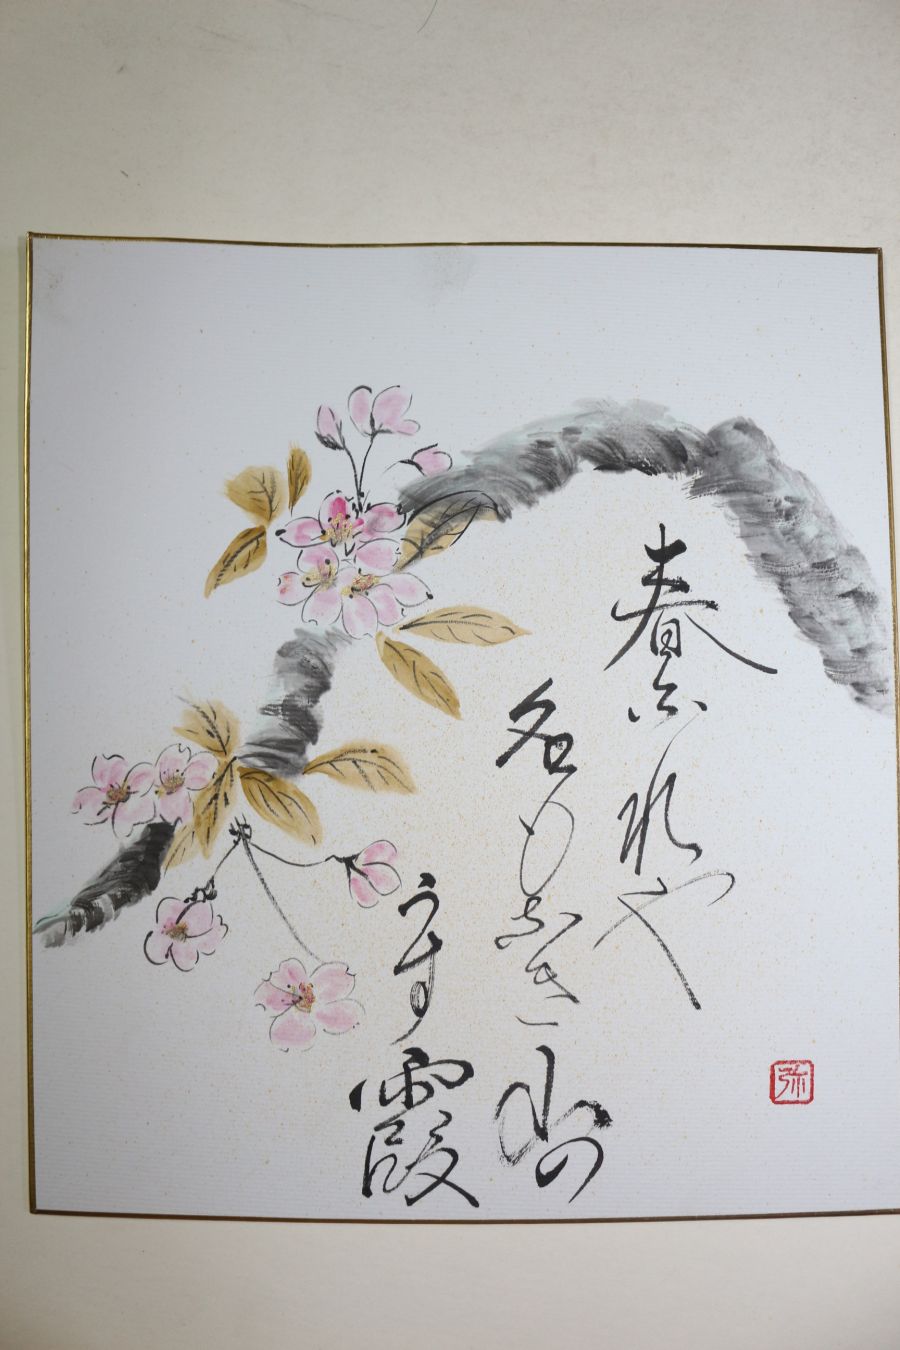 春なれや
名もなき山の
うす霞
弥